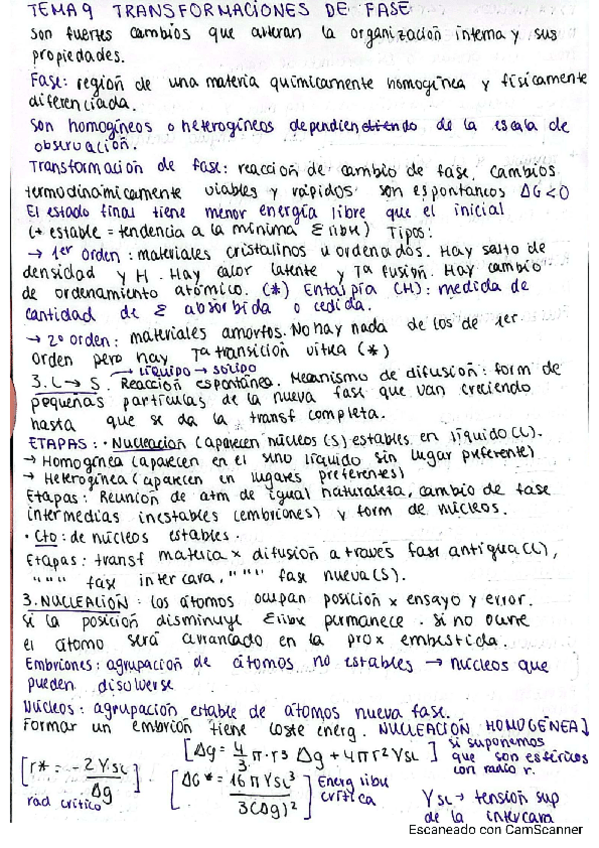 TEMA 9 TRANSFORMACIONES DE FASE
Son fuertes cambios que alteran la organización interna y sus
propiedades.
Fase: región de una materia químicamente homogínea y físicamente
diferenciada.
Son homogíneos o heterogíneos dependiendo de la escala de
observación.
Transformación de fase: reacción de cambio de fase. Cambios
termodinámicamente viables y rápidos son espontaneos ΔG<0
El estado final tiene menor energía libre que el inicial
(+ estable = tendencia a la mínima Ɛ libre) Tipos:
→ 1er orden: materiales cristalinos u ordenados. Hay salto de
densidad y H. Hay calor latente y Tª fusión. Hay cambio
de ordenamiento atómico. (*) Entalpía (H): medida de
cantidad de Ɛ absorbida o cedida.
→ 2º orden: materiales amorfos. No hay nada de los de 1er
orden pero hay Tª transición vítrea (*)
→ líquido → sólido
3. L → S. Reacción espontánea. Mecanismo de difusión: form de
pequeñas partículas de la nueva fase que van creciendo
hasta que se da la transf completa.
ETAPAS: · Nucleación (aparecen núcleos (S) estables en líquido (L).
→ Homogínea (aparecen en el sino líquido sin lugar preferente)
→ Heterogínea (aparecen en lugares preferentes)
Etapas: Reunión de atm de igual naturaleza, cambio de fase
intermedias inestables (embriones) y form de núcleos.
· Cto: de núcleos estables.
Etapas: transf materia x difusión a través fase antigua (L),
" " " fase intercara, " " " fase nueva (S).
3. NUCLEACIÓN: los átomos ocupan posición x ensayo y error.
Si la posición disminuye Ɛ libre permanece. Si no ocurre
el átomo será arrancado en la prox embestida.
Embriones: agrupación de átomos no estables → núcleos que
pueden disolverse
Núcleos: agrupación estable de átomos nueva fase.
Formar un embrión tiene coste energ. NUCLEACIÓN HOMOGÉNEA ↓
[Δg = 4/3 π · r3 Δg + 4πr2 γSL] si suponemos
que son esféricos
con radio r.
[r* = - 2γSL/Δg]
rad crítico
[ΔG* = 16πγSL3/3(Δg)2] Energ libre
crítica
γSL → tensión sup
de la intercara
Escaneado con CamScanner